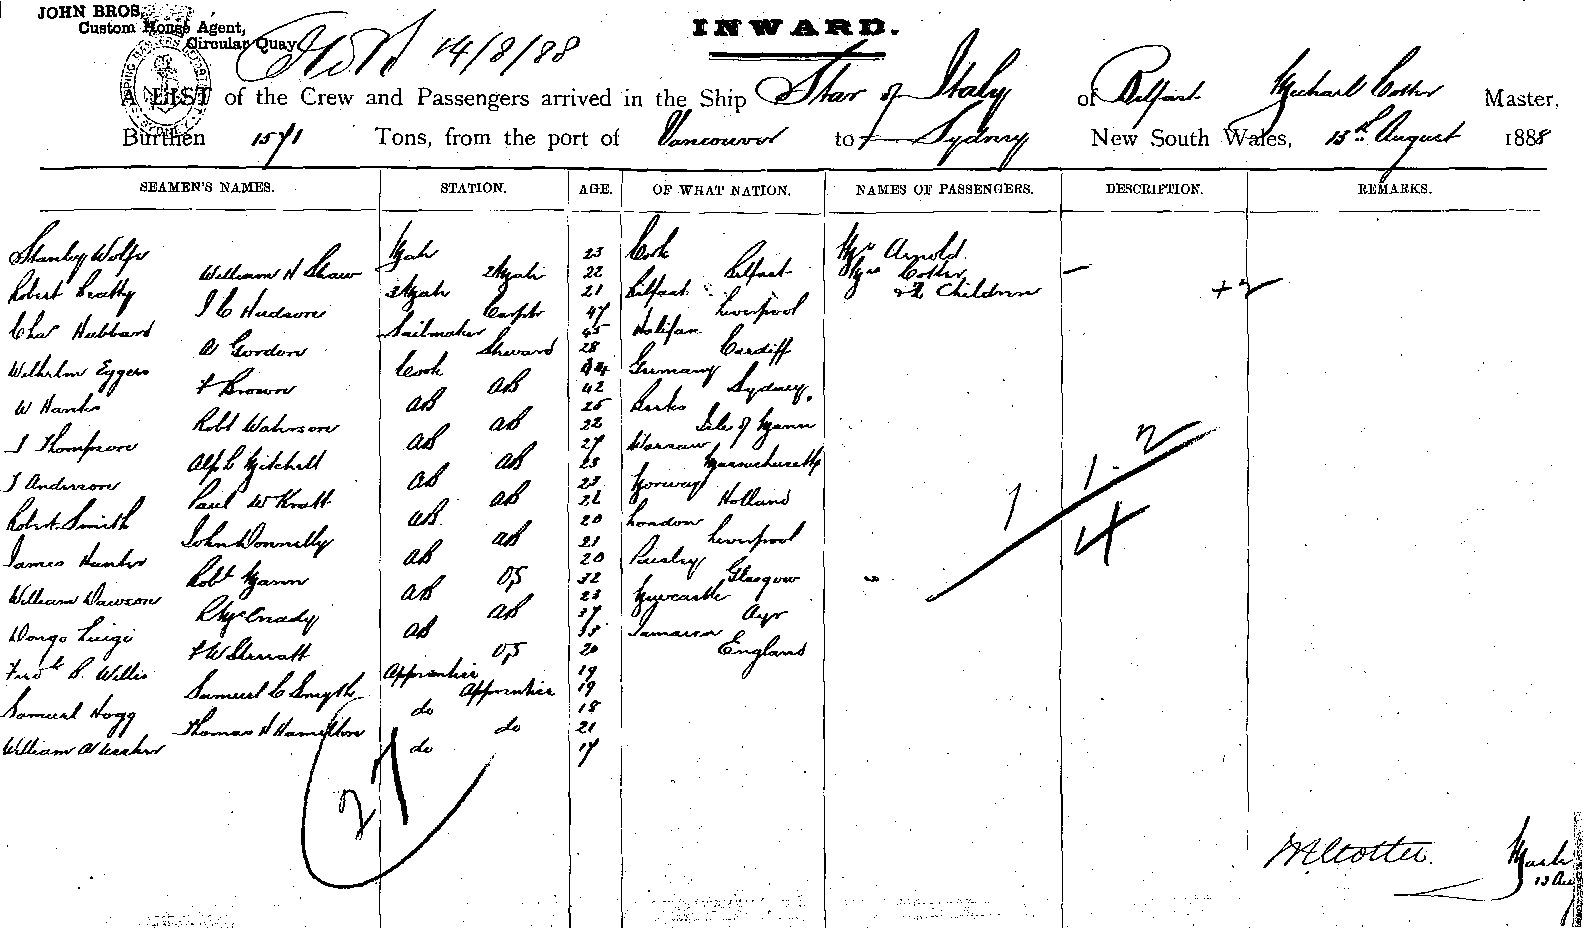 JOHN BROS.
Custom House Agent,
Circular Quay
14/8/88
INWARD.
A LIST of the Crew and Passengers arrived in the Ship Star of Italy of Belfast Michael Cotter Master,
Burthen 1571 Tons, from the port of Vancouver to Sydney New South Wales, 13th August 1888
SEAMEN'S NAMES. STATION. AGE. OF WHAT NATION. NAMES OF PASSENGERS. DESCRIPTION. REMARKS.
Stanley Wolfe Mate 23 Cork Mr Arnold
William H Shaw 2 Mate 22 Belfast Mrs Cotter
Robert Beatty 3 Mate 21 Belfast & 2 Children +2
J C Hudson Carptr 47 Liverpool
Chas Hubbard Sailmaker 45 Halifax
A Gordon Steward 28 Cardiff
Wilhelm Eggers Cook Germany
F Brown AB 42 Sydney
W Hanks AB 25 Berks
Robt AB 22 Isle of Mann
J Thompson AB 27 Warsaw
Alf L Mitchell AB 23 Massachusetts
J Anderson AB 23 Norway
Paul W Kratt AB Holland
Robert Smith AB 20 London
John Donnelly AB 21 Liverpool
James Hunter AB 20 Paisley
Robt Mann OS 32 Glasgow
William Dawson AB 23 Newcastle
R McCready AB 37 Ayr
Dongo Luigi AB Jamaica
F W Sterratt OS 20 England
Fredk S. Willis Apprentice 19
Samuel C Smyth Apprentice 19
Samuel Hogg do 18
Thomas H Hamilton do 21
William A do 17
1 1 . 2
4
27
M Cotter. Master
13 Aug